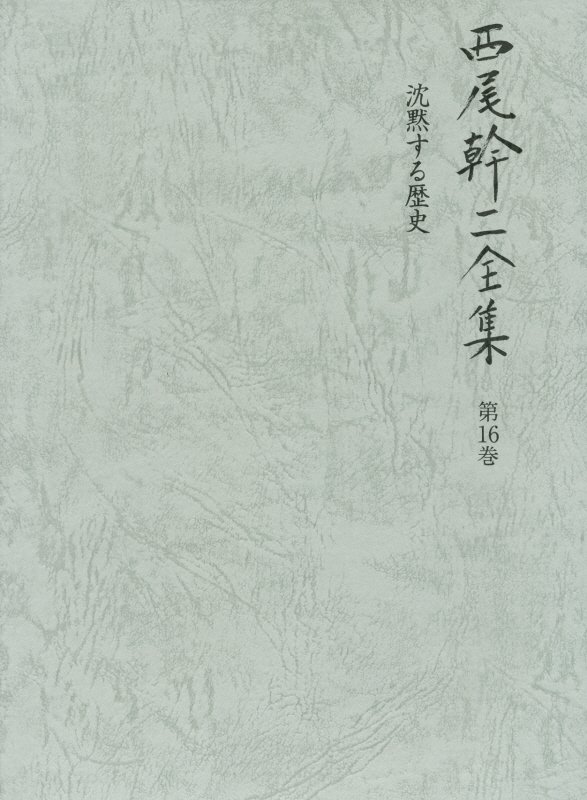 西尾幹二全集
第16巻
沈黙する歴史